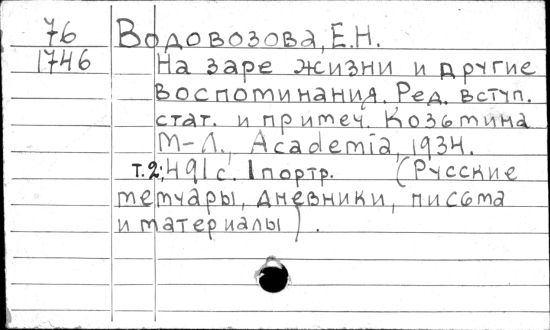 76 Водовозова, Е.Н.
1746 На заре жизни и другие
воспоминания. Ред. вступ.
стат. и примеч. Козьмина
М-Л., Academia, 1934.
т.2; 491 с. 1 портр. (Русские
мемуары, дневники, письма
и материалы).